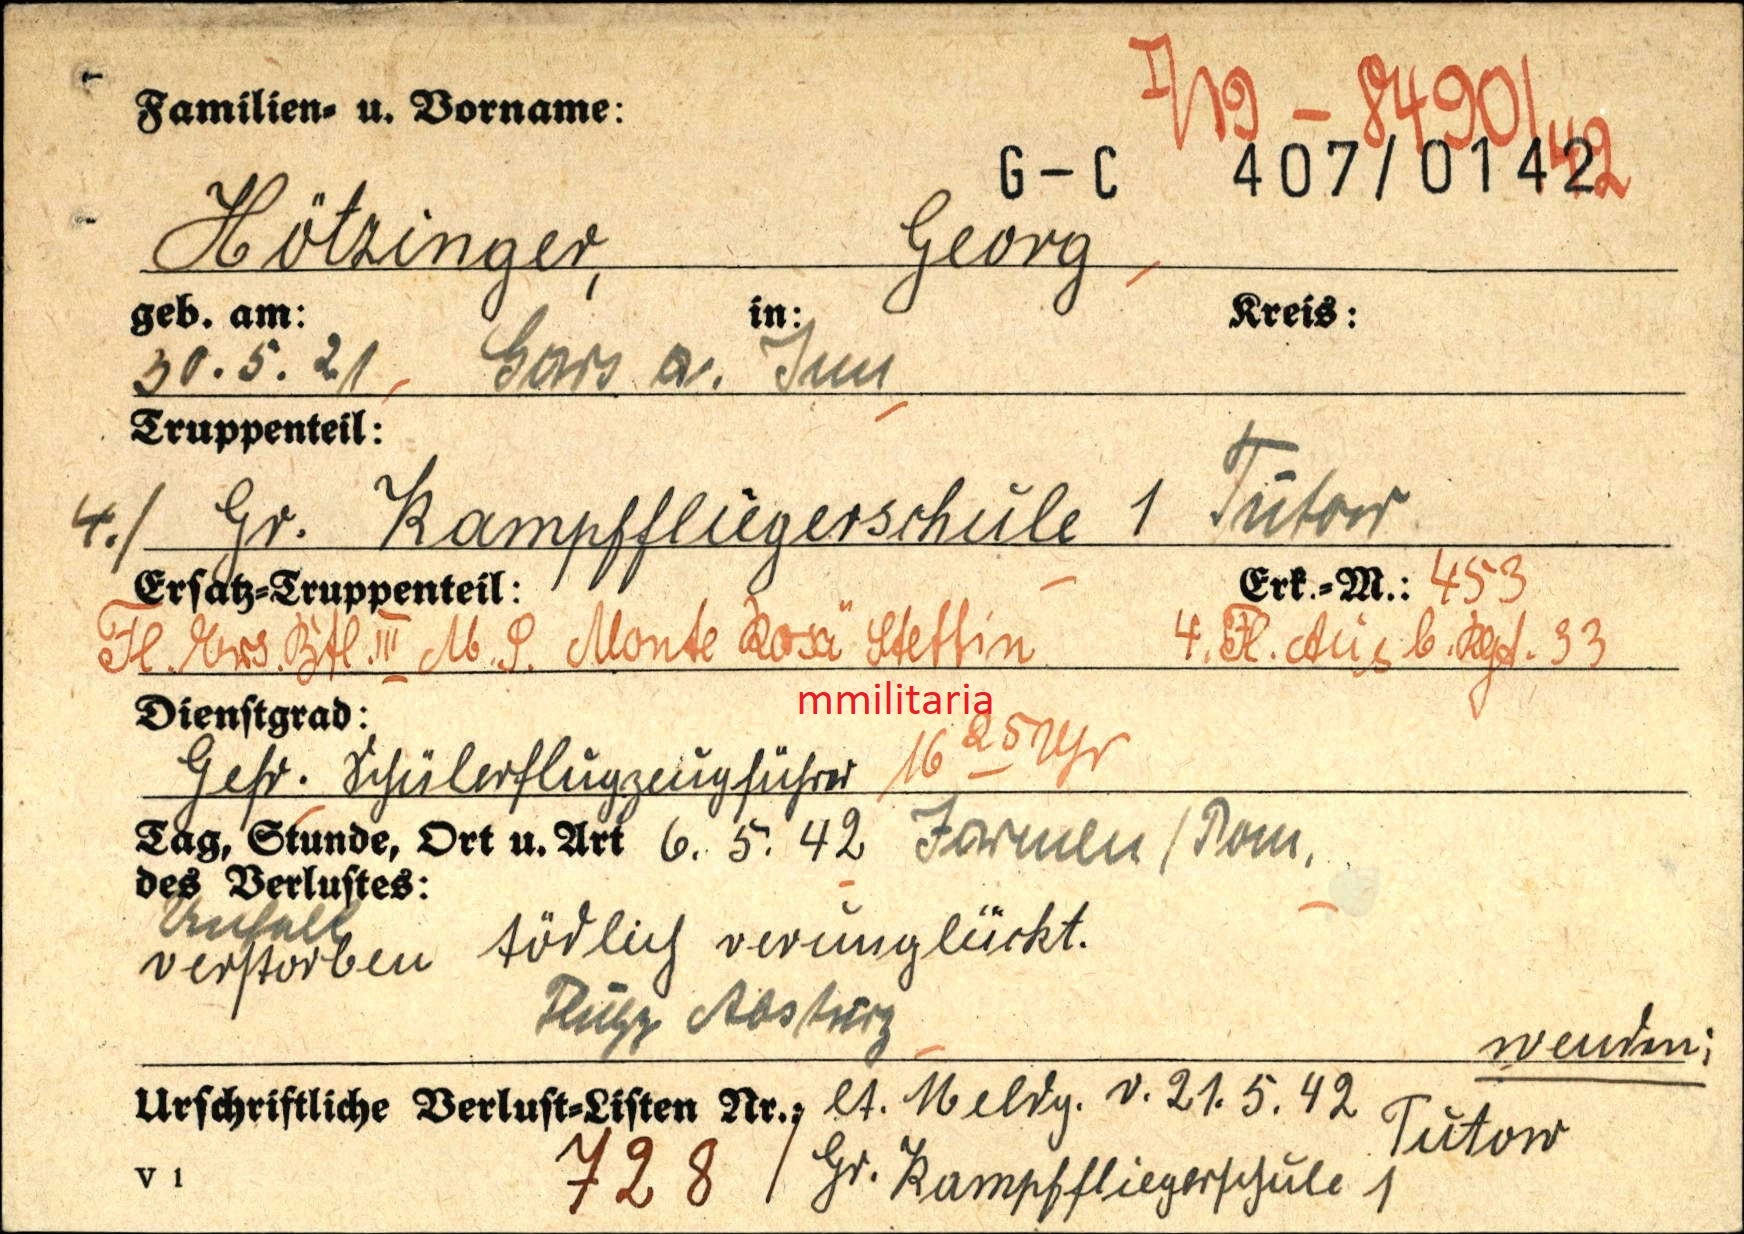 I/19 - 8490/42
Familien- u. Vorname:
G-C 407/0142
Hötzinger, Georg
geb. am: in: Kreis:
30.5.21 Gars a. Inn
Truppenteil:
4./ Gr. Kampffliegerschule 1 Tutow
Ersatz-Truppenteil: Erk.-M.: 453
Fl. Ers. Btl. III M. S. Monte Rosa" Stettin 4. Fl. Ausb. Rgt. 33
mmilitaria
Dienstgrad:
Gefr. Schülerflugzeugführer 16 25 Uhr
Tag, Stunde, Ort u. Art 6. 5. 42 Jarmen / Pom.
des Verlustes:
Unfall
verstorben tödlich verunglückt.
Flugz Absturz
wenden;
Urschriftliche Verlust-Listen Nr.: lt. Meldg. v. 21.5.42 Tutow
V 1 728 / Gr. Kampffliegerschule 1